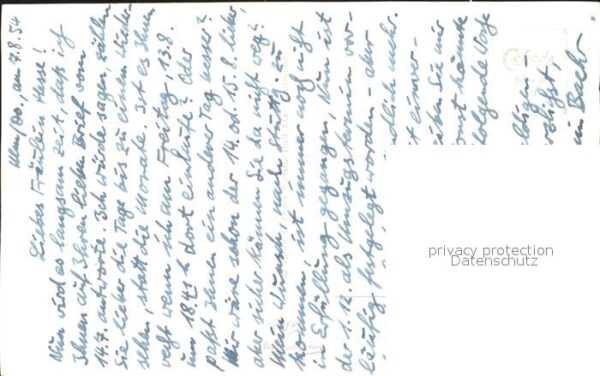 Ulm/Do., am 7.8.54
Liebes Fräulein Hesse!
Nun wird es langsam Zeit, daß ich
Ihnen auf Ihren lieben Brief vom
14.7. antworte. Ich würde sagen, zählen
Sie lieber die Tage bis zu einem Wieder-
sehen, statt die Monate. Ist es Ihnen
recht wenn ich am Freitag, 13.8.
um 18 41 h dort einlaufe? Oder
paßt Ihnen ein anderer Tag besser?
Mir wäre schon der 14. od. 15.8. lieber,
aber sicher können Sie da nicht weg?
Mein Wunsch, nach Stuttg. zu
kommen, ist immer noch nicht
in Erfüllung gegangen. Nun ist
der 1.12. als Umzugstermin vor-
läufig festgelegt worden - aber
endlich mehr.
einver-
Sie mir
könnte
folgende Woche
Bechr
privacy protection
Datenschutz